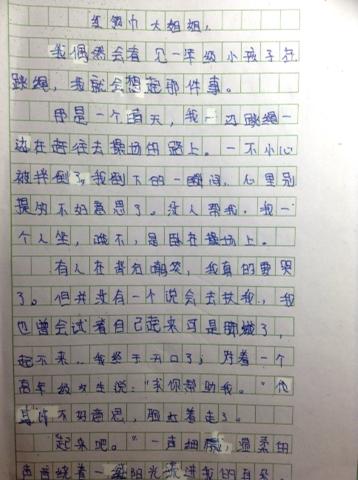 红领巾大姐姐,
我偶然会看见一年级小孩子在
跳绳,我就会想起那件事。
那是一个晴天,我一边跳绳一
边在奔往去操场的路上。一不小心
被绊倒了,我倒下的一瞬间,心里别
提的不好意思了。没人帮我,我一
个人坐,哦不,是卧在操场上。
有人在背后嘲笑,我真的要哭
了。但并没有一个说会去扶我,我
也曾尝试着自己起来可是脚
起不来..我终于开口了;对着一个
高年级女生说:"求你帮助我。"他
不好意思,脸红着走了。
起来吧。"一声细腻,温柔的
声音绕着一缕阳光流进我的耳朵。